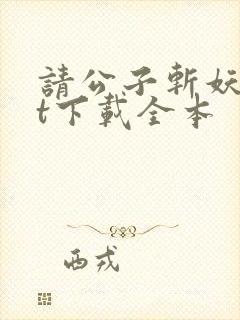 請公子斬妖
t下載全本
西戎